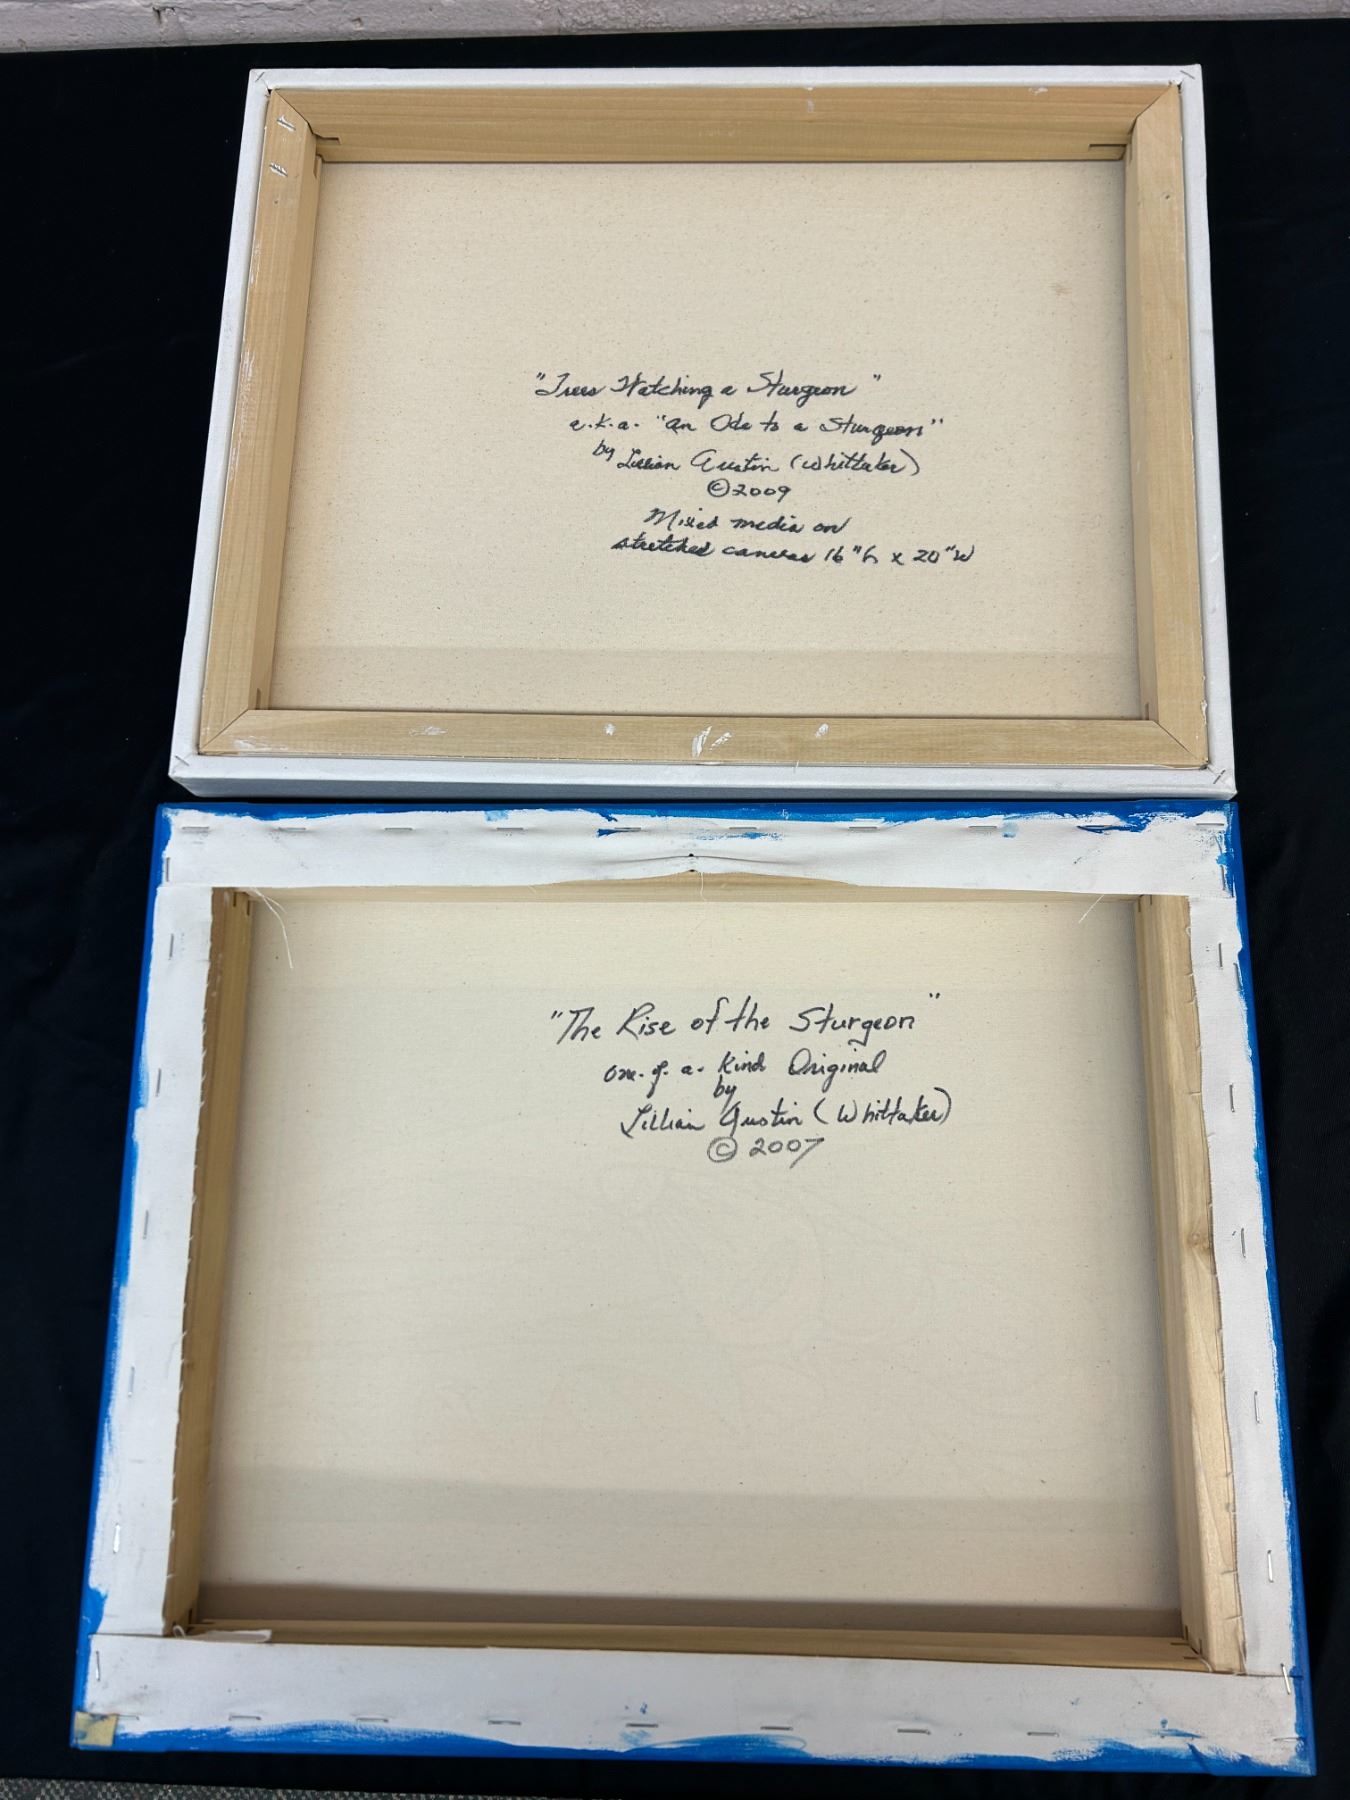 "Trees Watching a Sturgeon"
a.k.a. "An Ode to a Sturgeon"
by Lillian Austin (Whittaker)
©2009
Mixed media on
stretched canvas 16"h x 20"W
"The Rise of the Sturgeon"
one-of-a-Kind Original
by
Lillian Austin (Whittaker)
© 2007